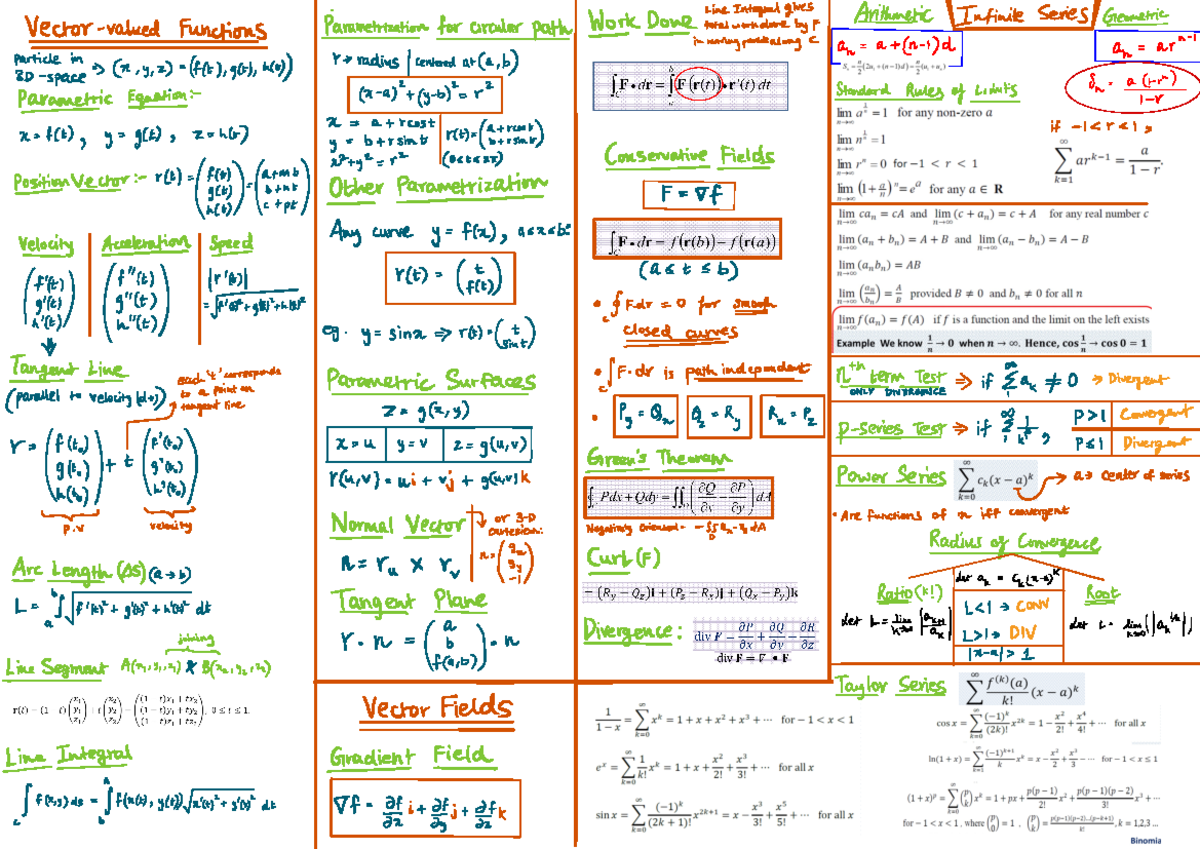 Vector-valued Functions
particle in 3D-space ⇒ (x, y, z) = (f(t), g(t), h(t))
Parametric Equation:-
x = f(t), y = g(t), z = h(t)
Position Vector:- r(t) = (f(t) g(t) h(t)) = (a+mt b+nt c+pt)
Velocity | Acceleration | Speed
(f'(t) g'(t) h'(t)) | (f''(t) g''(t) h''(t)) | |r'(t)| = √f'(t)²+g'(t)²+h'(t)²
Tangent Line
(parallel to velocity
each 't' corresponds to a point on tangent line
r = (f(t₀) g(t₀) h(t₀)) + t (f'(t₀) g'(t₀) h'(t₀))
p.v velocity
Arc Length (ΔS) (a→b)
L = ∫ₐᵇ √f'(t)² + g'(t)² + h'(t)² dt
joining
Line Segment A(x₁, y₁, z₁) & B(x₂, y₂, z₂)
r(t) = (1 − t)(x₁ y₁ z₁) + t(x₂ y₂ z₂) = ((1 − t)x₁ + tx₂ (1 − t)y₁ + ty₂ (1 − t)z₁ + tz₂), 0 ≤ t ≤ 1.
Line Integral
∫c f(x,y) ds = ∫ f(x(t), y(t)) √x'(t)² + y'(t)² dt
Parametrization for circular path
r → radius | centered at (a, b)
(x-a)² + (y-b)² = r²
x = a + r cos t
y = b + r sin t
x² + y² = r²
r(t) = (a + r cos t b + r sin t)
(0 ≤ t ≤ 2π)
Other Parametrization
Any curve y = f(x), a ≤ x ≤ b:
r(t) = (t f(t))
eg. y = sinx ⇒ r(t) = (t sin t)
Parametric Surfaces
z = g(x, y)
x = u | y = v | z = g(u, v)
r(u,v) = ui + vj + g(u,v)k
Normal Vector
n = rᵤ × rᵥ
or 3-D cartesian:
n = (gₓ g_y -1)
Tangent Plane
r · n = (a b f(a,b)) · n
Vector Fields
Gradient Field
∇f = ∂f/∂x i + ∂f/∂y j + ∂f/∂z k
Work Done
Line Integral gives total work done by F in moving particle along C
∫c F • dr = ∫ₐᵇ F(r(t)) • r'(t) dt
Conservative Fields
F = ∇f
∫c F • dr = f(r(b)) − f(r(a))
(a ≤ t ≤ b)
• ∮c F·dr = 0 for smooth closed curves
• ∫c F·dr is path independent
• P_y = Qₓ Q_z = R_y Rₓ = P_z
Green's Theorem
∮c Pdx + Qdy = ∬D (∂Q/∂x − ∂P/∂y) dA
Negatively Oriented = −∬D Qₓ − P_y dA
Curl (F)
= (R_y − Q_z)i + (P_z − Rₓ)j + (Qₓ − P_y)k
Divergence:
div F = ∂P/∂x + ∂Q/∂y + ∂R/∂z
div F = ∇ • F
Arithmetic Infinite Series Geometric
aₙ = a + (n-1)d
Sₙ = n/2 (2a₁ + (n−1)d) = n/2 (a₁ + aₙ)
aₙ = ar^(n-1)
Sₙ = a(1-rⁿ)/(1-r)
Standard Rules of Limits
lim n→∞ a^(1/n) = 1 for any non-zero a
lim n→∞ n^(1/n) = 1
lim n→∞ rⁿ = 0 for −1 < r < 1
lim n→∞ (1 + a/n)ⁿ = eᵃ for any a ∈ R
if -1 < r < 1,
∑ k=1 ∞ ar^(k−1) = a/(1 − r).
lim n→∞ caₙ = cA and lim n→∞ (c + aₙ) = c + A for any real number c
lim n→∞ (aₙ + bₙ) = A + B and lim n→∞ (aₙ − bₙ) = A − B
lim n→∞ (aₙbₙ) = AB
lim n→∞ (aₙ/bₙ) = A/B provided B ≠ 0 and bₙ ≠ 0 for all n
lim n→∞ f(aₙ) = f(A) if f is a function and the limit on the left exists
Example We know 1/n → 0 when n → ∞. Hence, cos 1/n → cos 0 = 1
nth term Test ⇒ if ∑ 1 ∞ aₖ ≠ 0 → Divergent
ONLY DIVERGENCE
p-series Test ⇒ if ∑ 1 ∞ 1/kᵖ,
P>1 | Convergent
P≤1 | Divergent
Power Series ∑ k=0 ∞ cₖ(x − a)ᵏ → a → center of series
• Are functions of x iff convergent
Radius of Convergence
Ratio (k!)
let L = lim k→∞ |aₖ₊₁/aₖ|
let aₖ = cₖ(x-a)ᵏ
L<1 → CONV
L>1 → DIV
|x-a| > 1
Root
let L = lim k→∞ (|aₖ|^(1/k))
Taylor Series ∑ f⁽ᵏ⁾(a)/k! (x − a)ᵏ
1/(1 − x) = ∑ k=0 ∞ xᵏ = 1 + x + x² + x³ + ⋯ for − 1 < x < 1
eˣ = ∑ k=0 ∞ 1/k! xᵏ = 1 + x + x²/2! + x³/3! + ⋯ for all x
sin x = ∑ k=0 ∞ (−1)ᵏ/(2k + 1)! x^(2k+1) = x − x³/3! + x⁵/5! + ⋯ for all x
cos x = ∑ k=0 ∞ (−1)ᵏ/(2k)! x^(2k) = 1 − x²/2! + x⁴/4! + ⋯ for all x
ln(1 + x) = ∑ k=1 ∞ (−1)^(k+1)/k xᵏ = x − x²/2 + x³/3 − ⋯ for − 1 < x ≤ 1
(1 + x)ᵖ = ∑ k=0 ∞ (p k) xᵏ = 1 + px + p(p − 1)/2! x² + p(p − 1)(p − 2)/3! x³ + ⋯
for − 1 < x < 1, where (p 0) = 1, (p k) = p(p−1)(p−2)...(p−k+1)/k!, k = 1,2,3 ...
Binomia